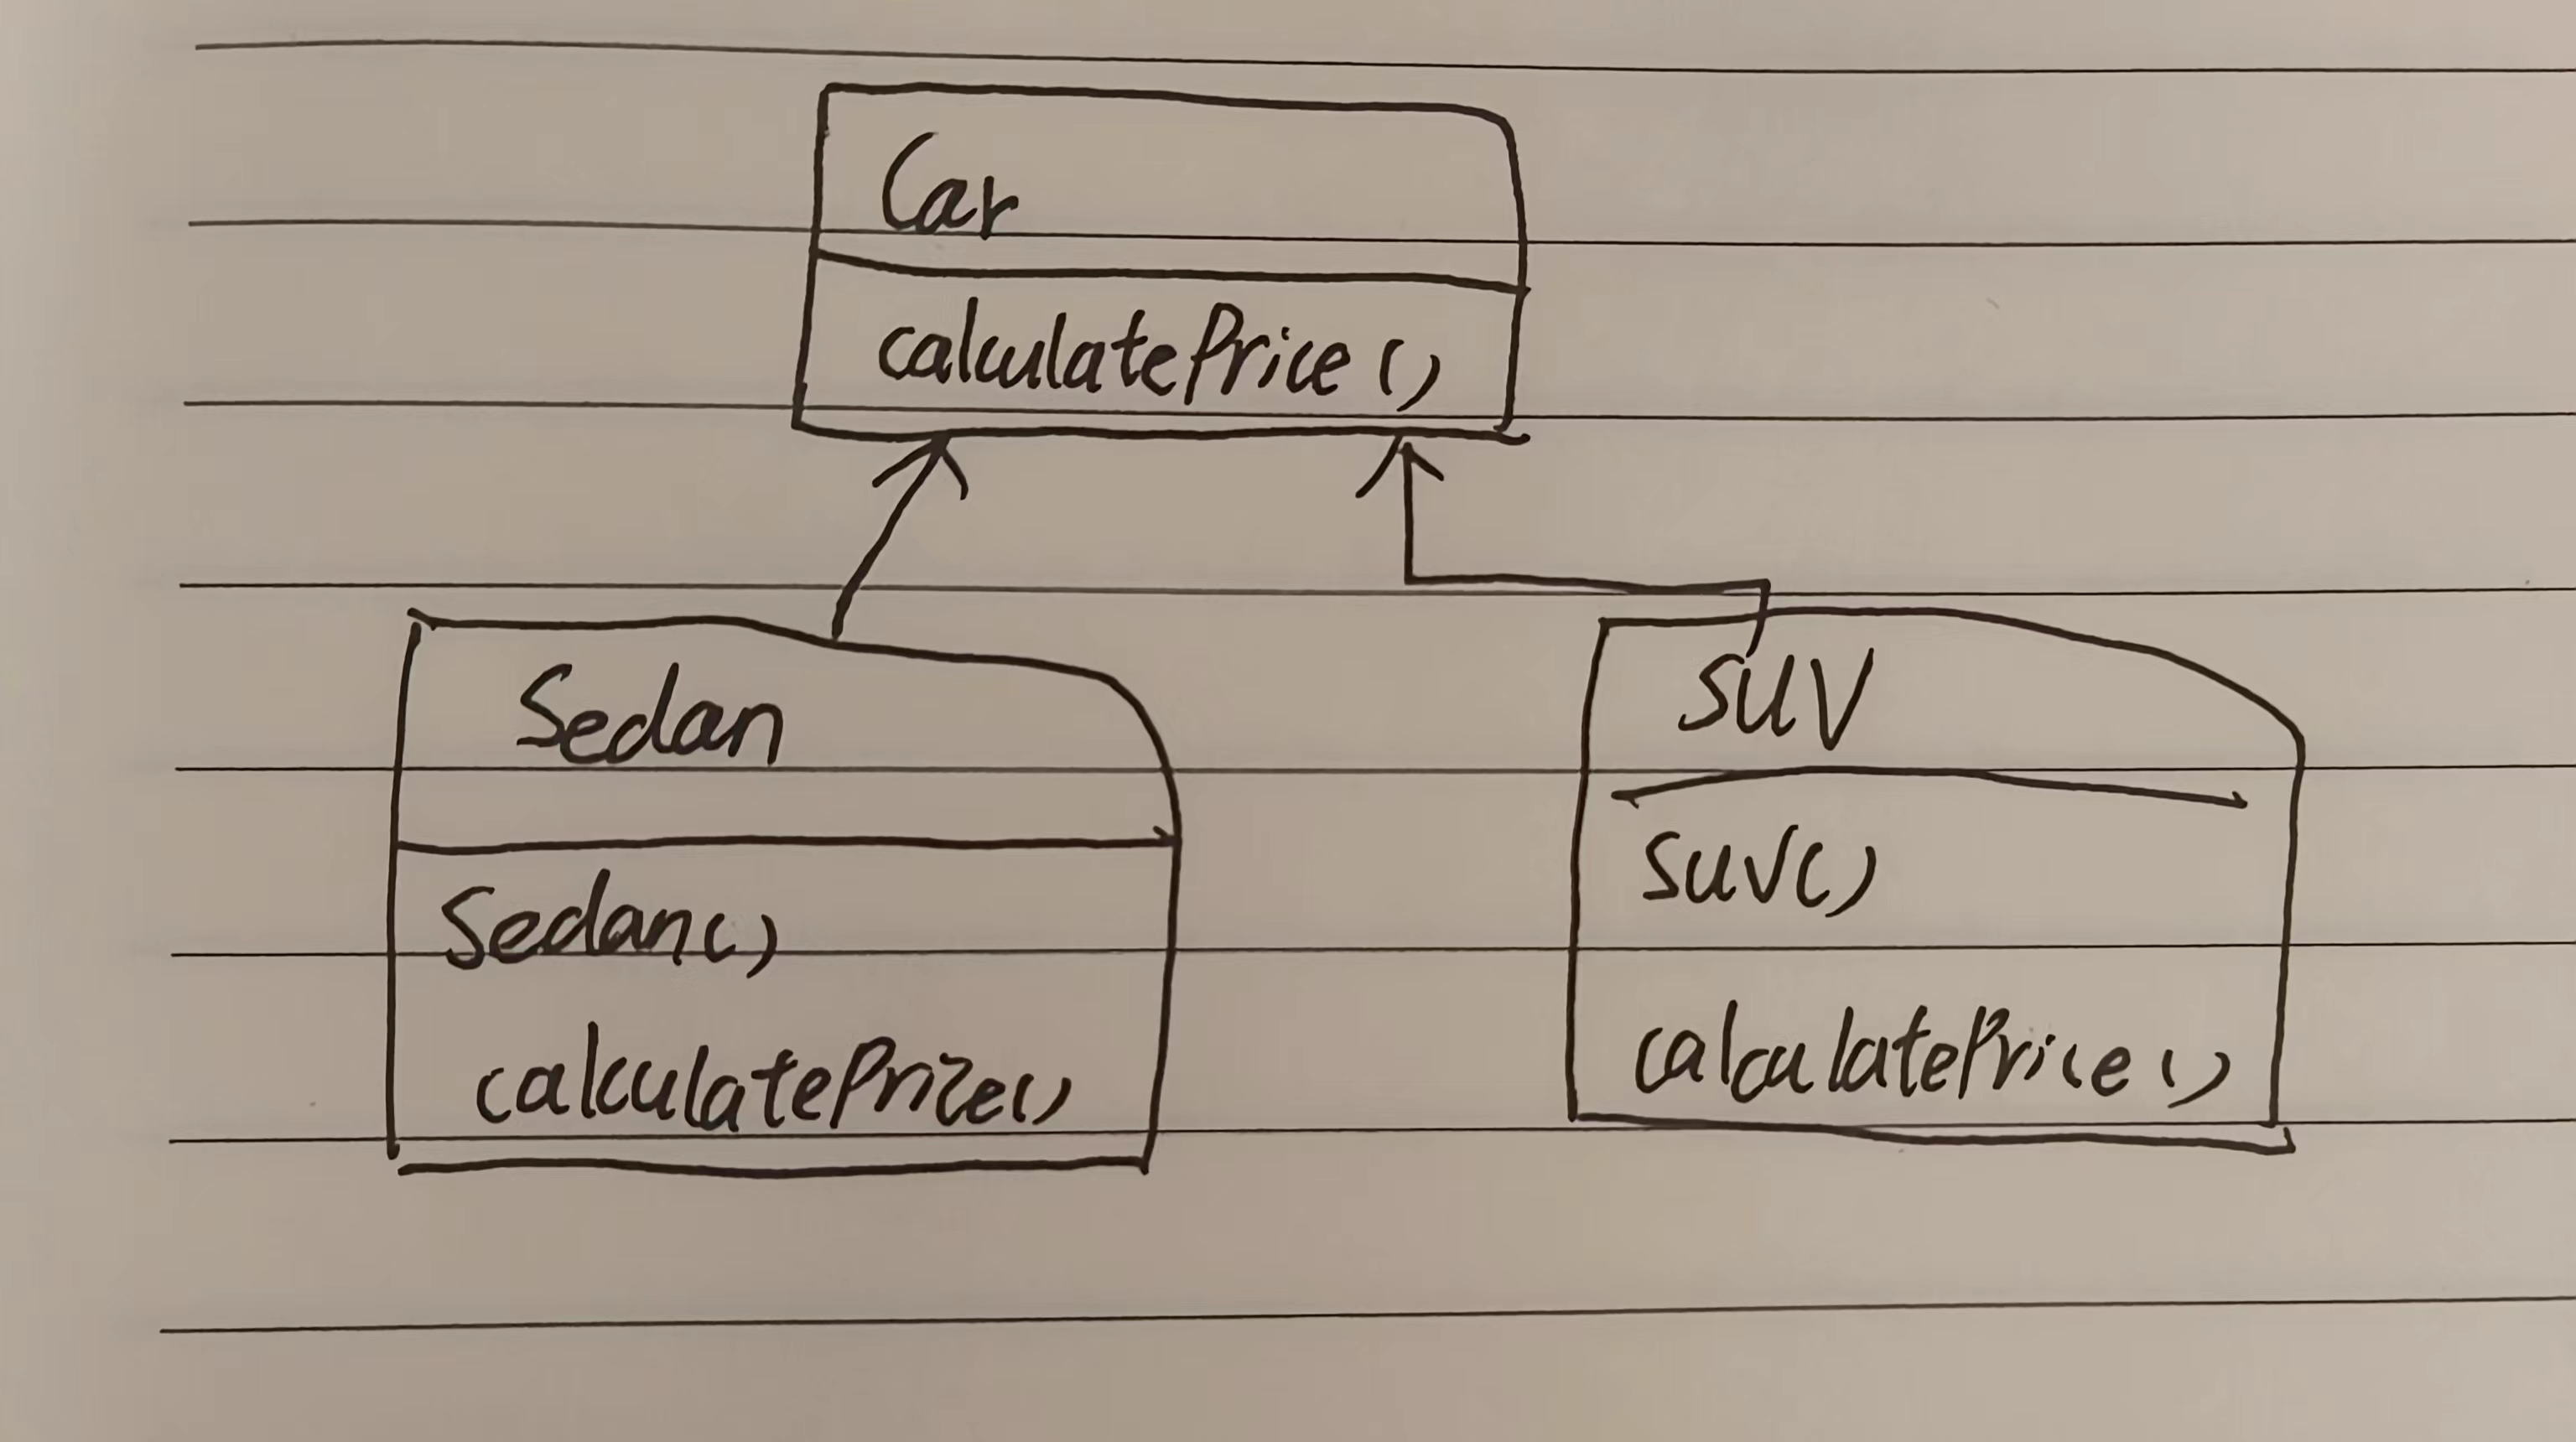 Car
calculatePrice()
Sedan
Sedan()
calculatePrize()
SUV
SUV()
calculatePrice()